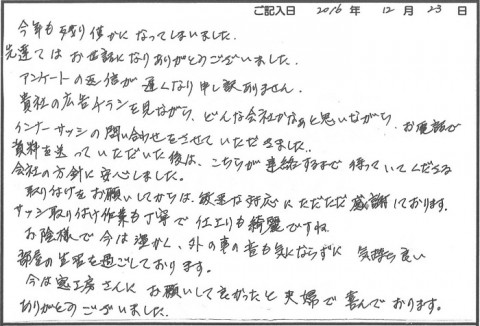 ご記入日 2016年 12月 23日
今年も残り僅かになってしまいました。
先達てはお世話になりありがとうございました。
アンケートの返信が遅くなり申し訳ありません。
貴社の広告チラシを見ながら、どんな会社かなぁと思いながら、お電話で
インナーサッシの問い合わせをさせていただきました。
資料を送っていただいた後は、こちらが連絡するまで待っていてくださる
会社の方針に安心しました。
取り付けをお願いしてからは、敏速な対応にただただ感謝しております。
サッシ取り付け作業も丁寧で仕上りも綺麗ですね
お陰様で今は温かく、外の車の音も気にならずに 気持ち良い
部屋の生活を過ごしております。
今は窓工房さんにお願いして良かったと夫婦で喜んでおります。
ありがとうございました。